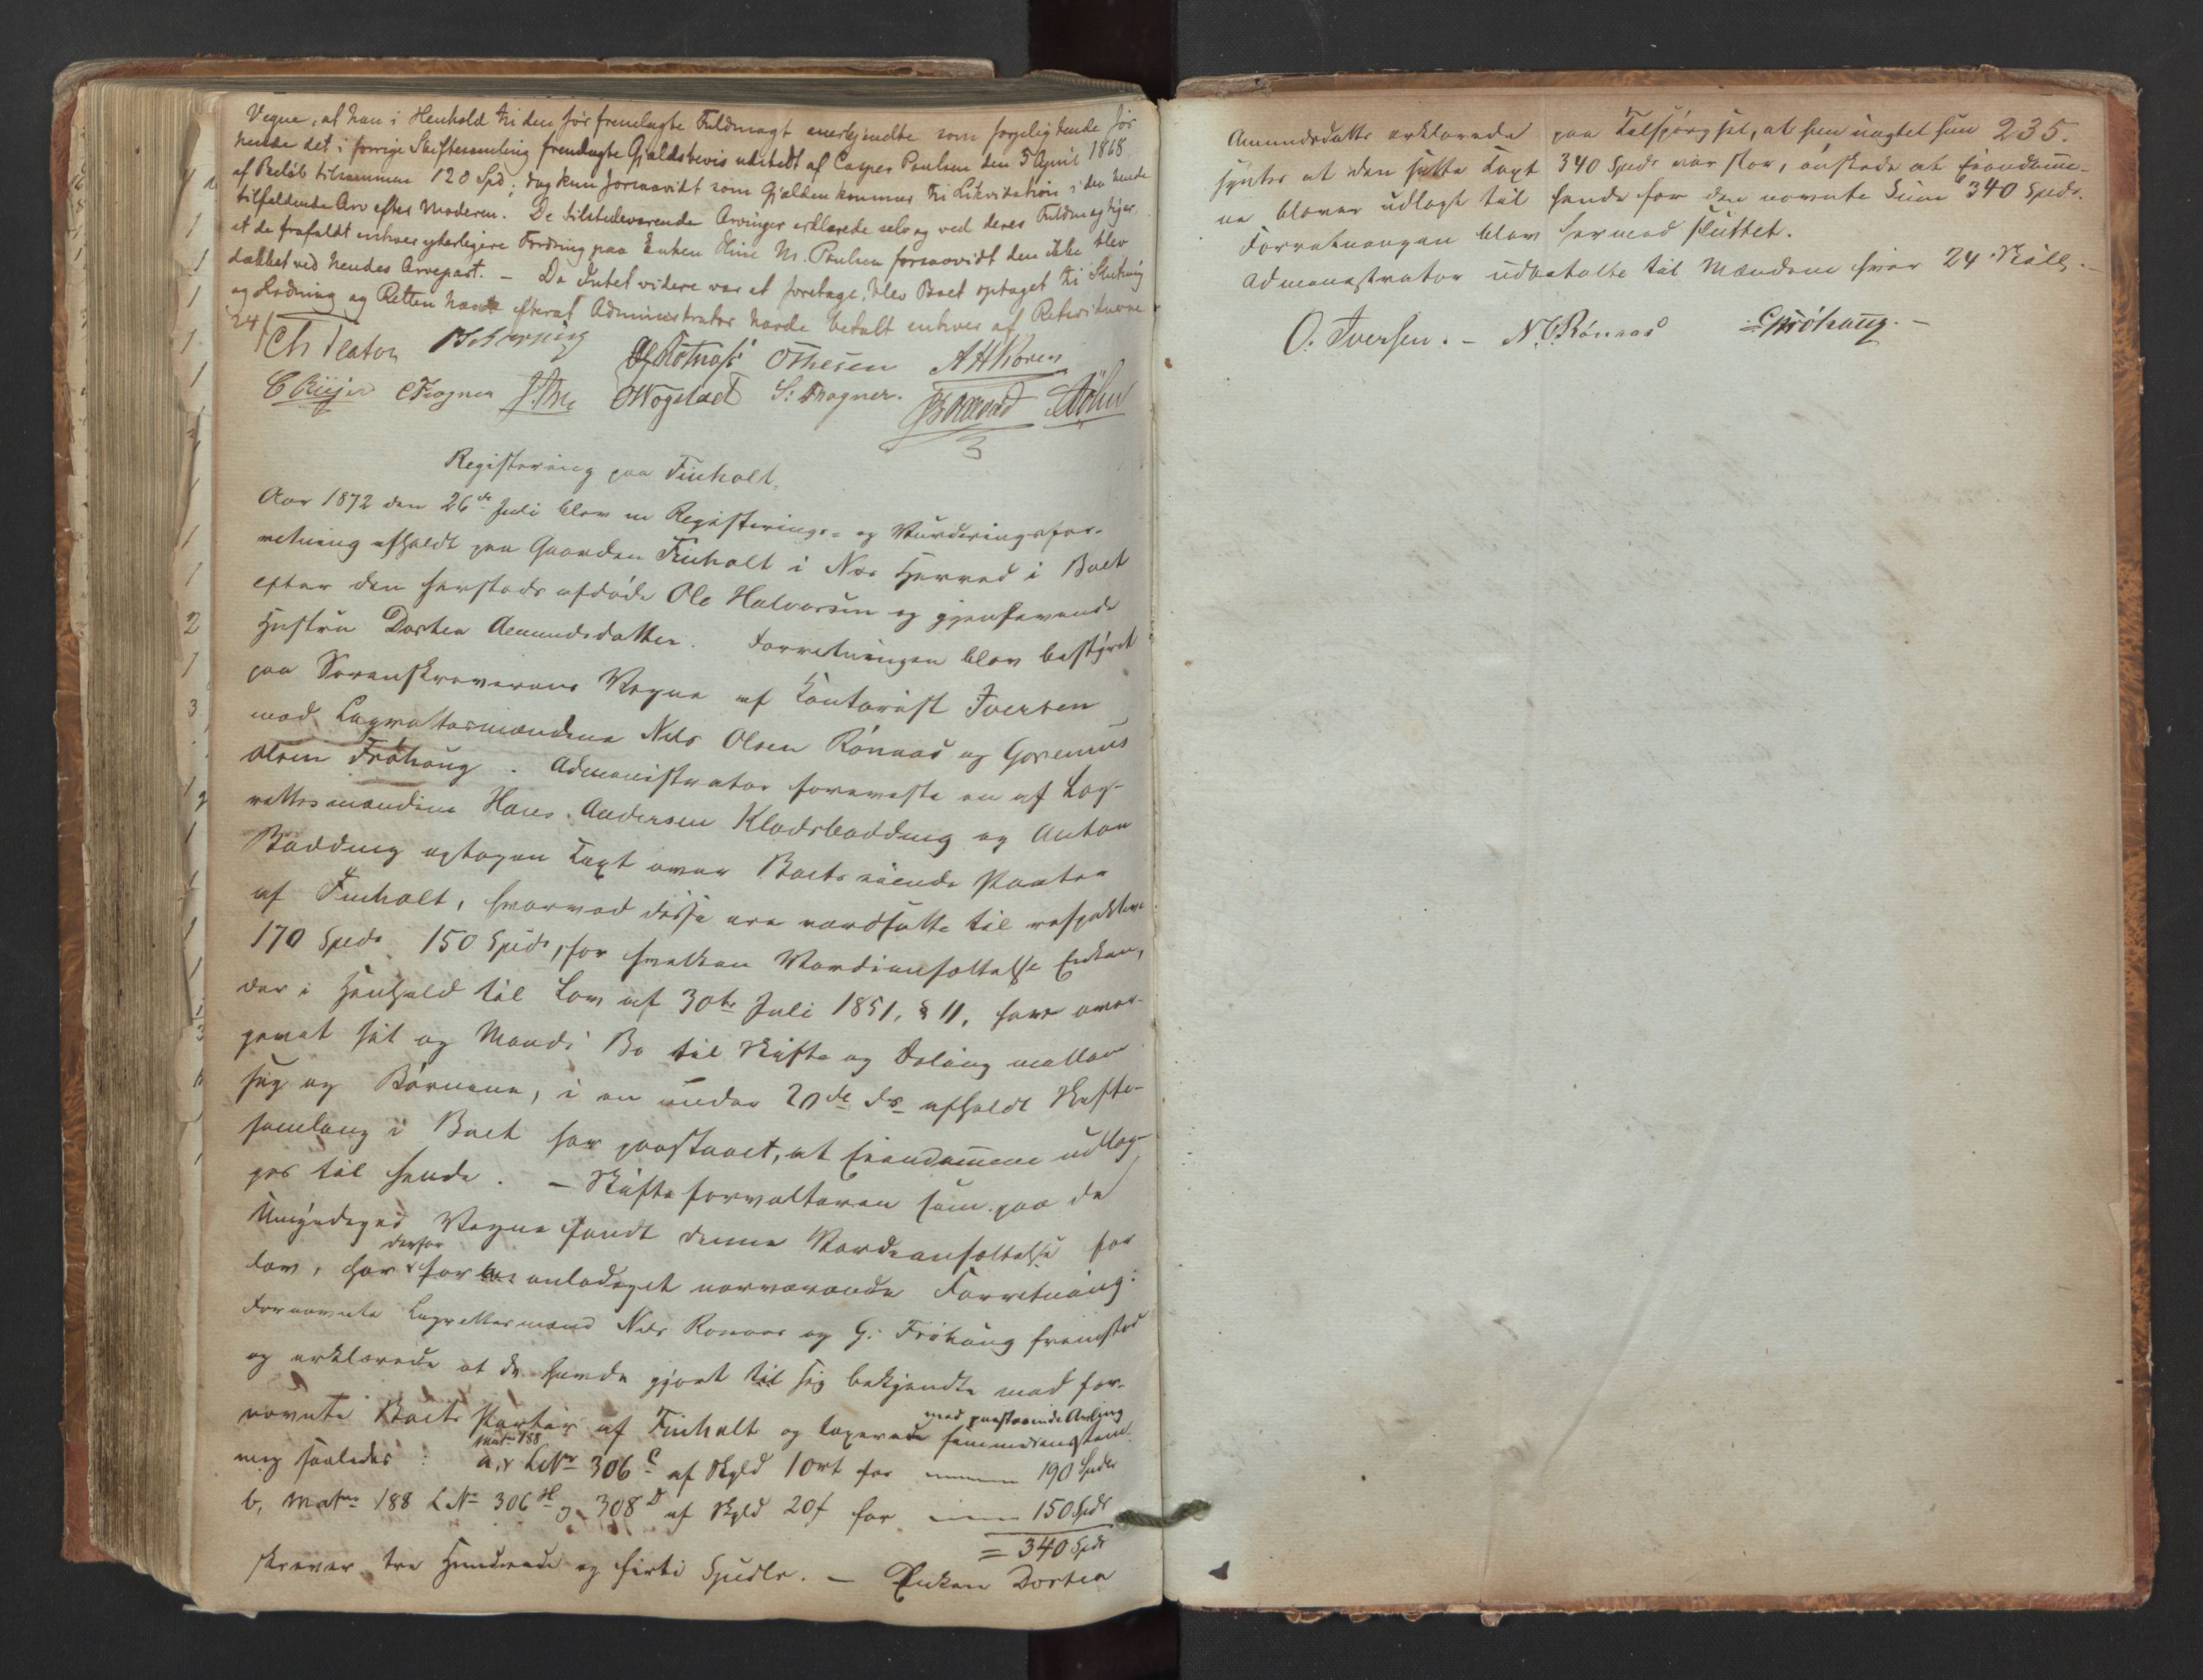 Vegne, at han i Henhold til den før fremlagte Fuldmagt anerkjendte som forpligtende for
hende det i forrige Skiftesamling fremlagte Gjældsbevis udstedt af Casper Paulsen den 5 April 1868
af Beløb tilsammen 120 Spd; dog kun forsaavidt som Gjælden kommer til Likvidation i den hende
tilfaldende Arv efter Moderen. De tilstedeværende Arvinger erklærede selv og ved deres Fuldmægtiger,
at de frafaldt enhver yderligere Fordring paa Enken M. Paulsen forsaavidt den ikke blev
dækket ved hendes Arvepart. – Da Intet videre var at foretage, blev Boet optaget til Slutning
og Lodning og Retten hævet efterat Administrator havde betalt enhver af Retsvidnerne
24 ſ
OThesen AHKoren
CFrogner OWogstad S: Frogner.
Registrering paa Finholt.
Aar 1872 den 26de Juli blev en Registrerings- og Vurderingsfor-
retning afholdt paa Gaarden Finholt i Næs Herred i Boet
efter den herstods afdøde Ole Halvorsen og gjenlevende
Hustru Dorthea Amundsdatter. Forretningen blev bestyret
paa Sorenskriverens Vegne af Kontorist Iversen
med Lagrettesmændene Nils Olsen Rønaas og Gremus
Olsen Frøhaug. Administrator foreviste en af Lag-
rettesmændene Hans Andersen Kladsbødding og Anton
Bødding optagen Taxt over Boets eiende Parter
af Finholt, hvorved disse ere værdsatte til respektive
170 Spd. 150 Spd., for hvilken Værdiansættelse Enken,
der i Henhold til Lov af 30te Juli 1851, § 11, har over-
givet sit og Mands Bo til Skifte og Deling mellem
sig og Børnene, i en under 20de ds afholdt Skifte-
samling i Boet har paastaaet, at Eiendommene udlæg-
ges til hende. – Skifteforvalteren som paa de
Umyndiges Vegne fandt denne Værdiansættelse for
lav, har derfor foranlediget nærværende Forretning:
Fornævnte Lagrettesmænd Nils Rønaas og G. Frøhaug fremstod
og erklærede at de havde gjort sig bekjendte med for-
nævnte Boets Parter af Finholt og taxerede samme med paastaaende Avling
saaledes: a, Mat No 188 LNr 306 c af Skyld 1 ort for 190 Spdr
b, MatNo 188 LNo 306 H og 308 D af Skyld 20 ſ for 150 Spdr
= 340 Spdr
skriver tre Hundrede og firti Spedlr. – Enken Dorthea
235.
Amundsdatter erklærede paa Tilspørgsel, at hun uagtet hun
syntes at den satte Taxt 340 Spdr var stor, ønskede at Eiendomme-
ne bliver udlagt til hende for den nævnte Sum 340 Spdr.
Forretningen blev hermed sluttet.
Administrator udbetalte til Mændene hver 24 Skill.
O. Iversen. – N.O.Rónaas GFróhaug. –